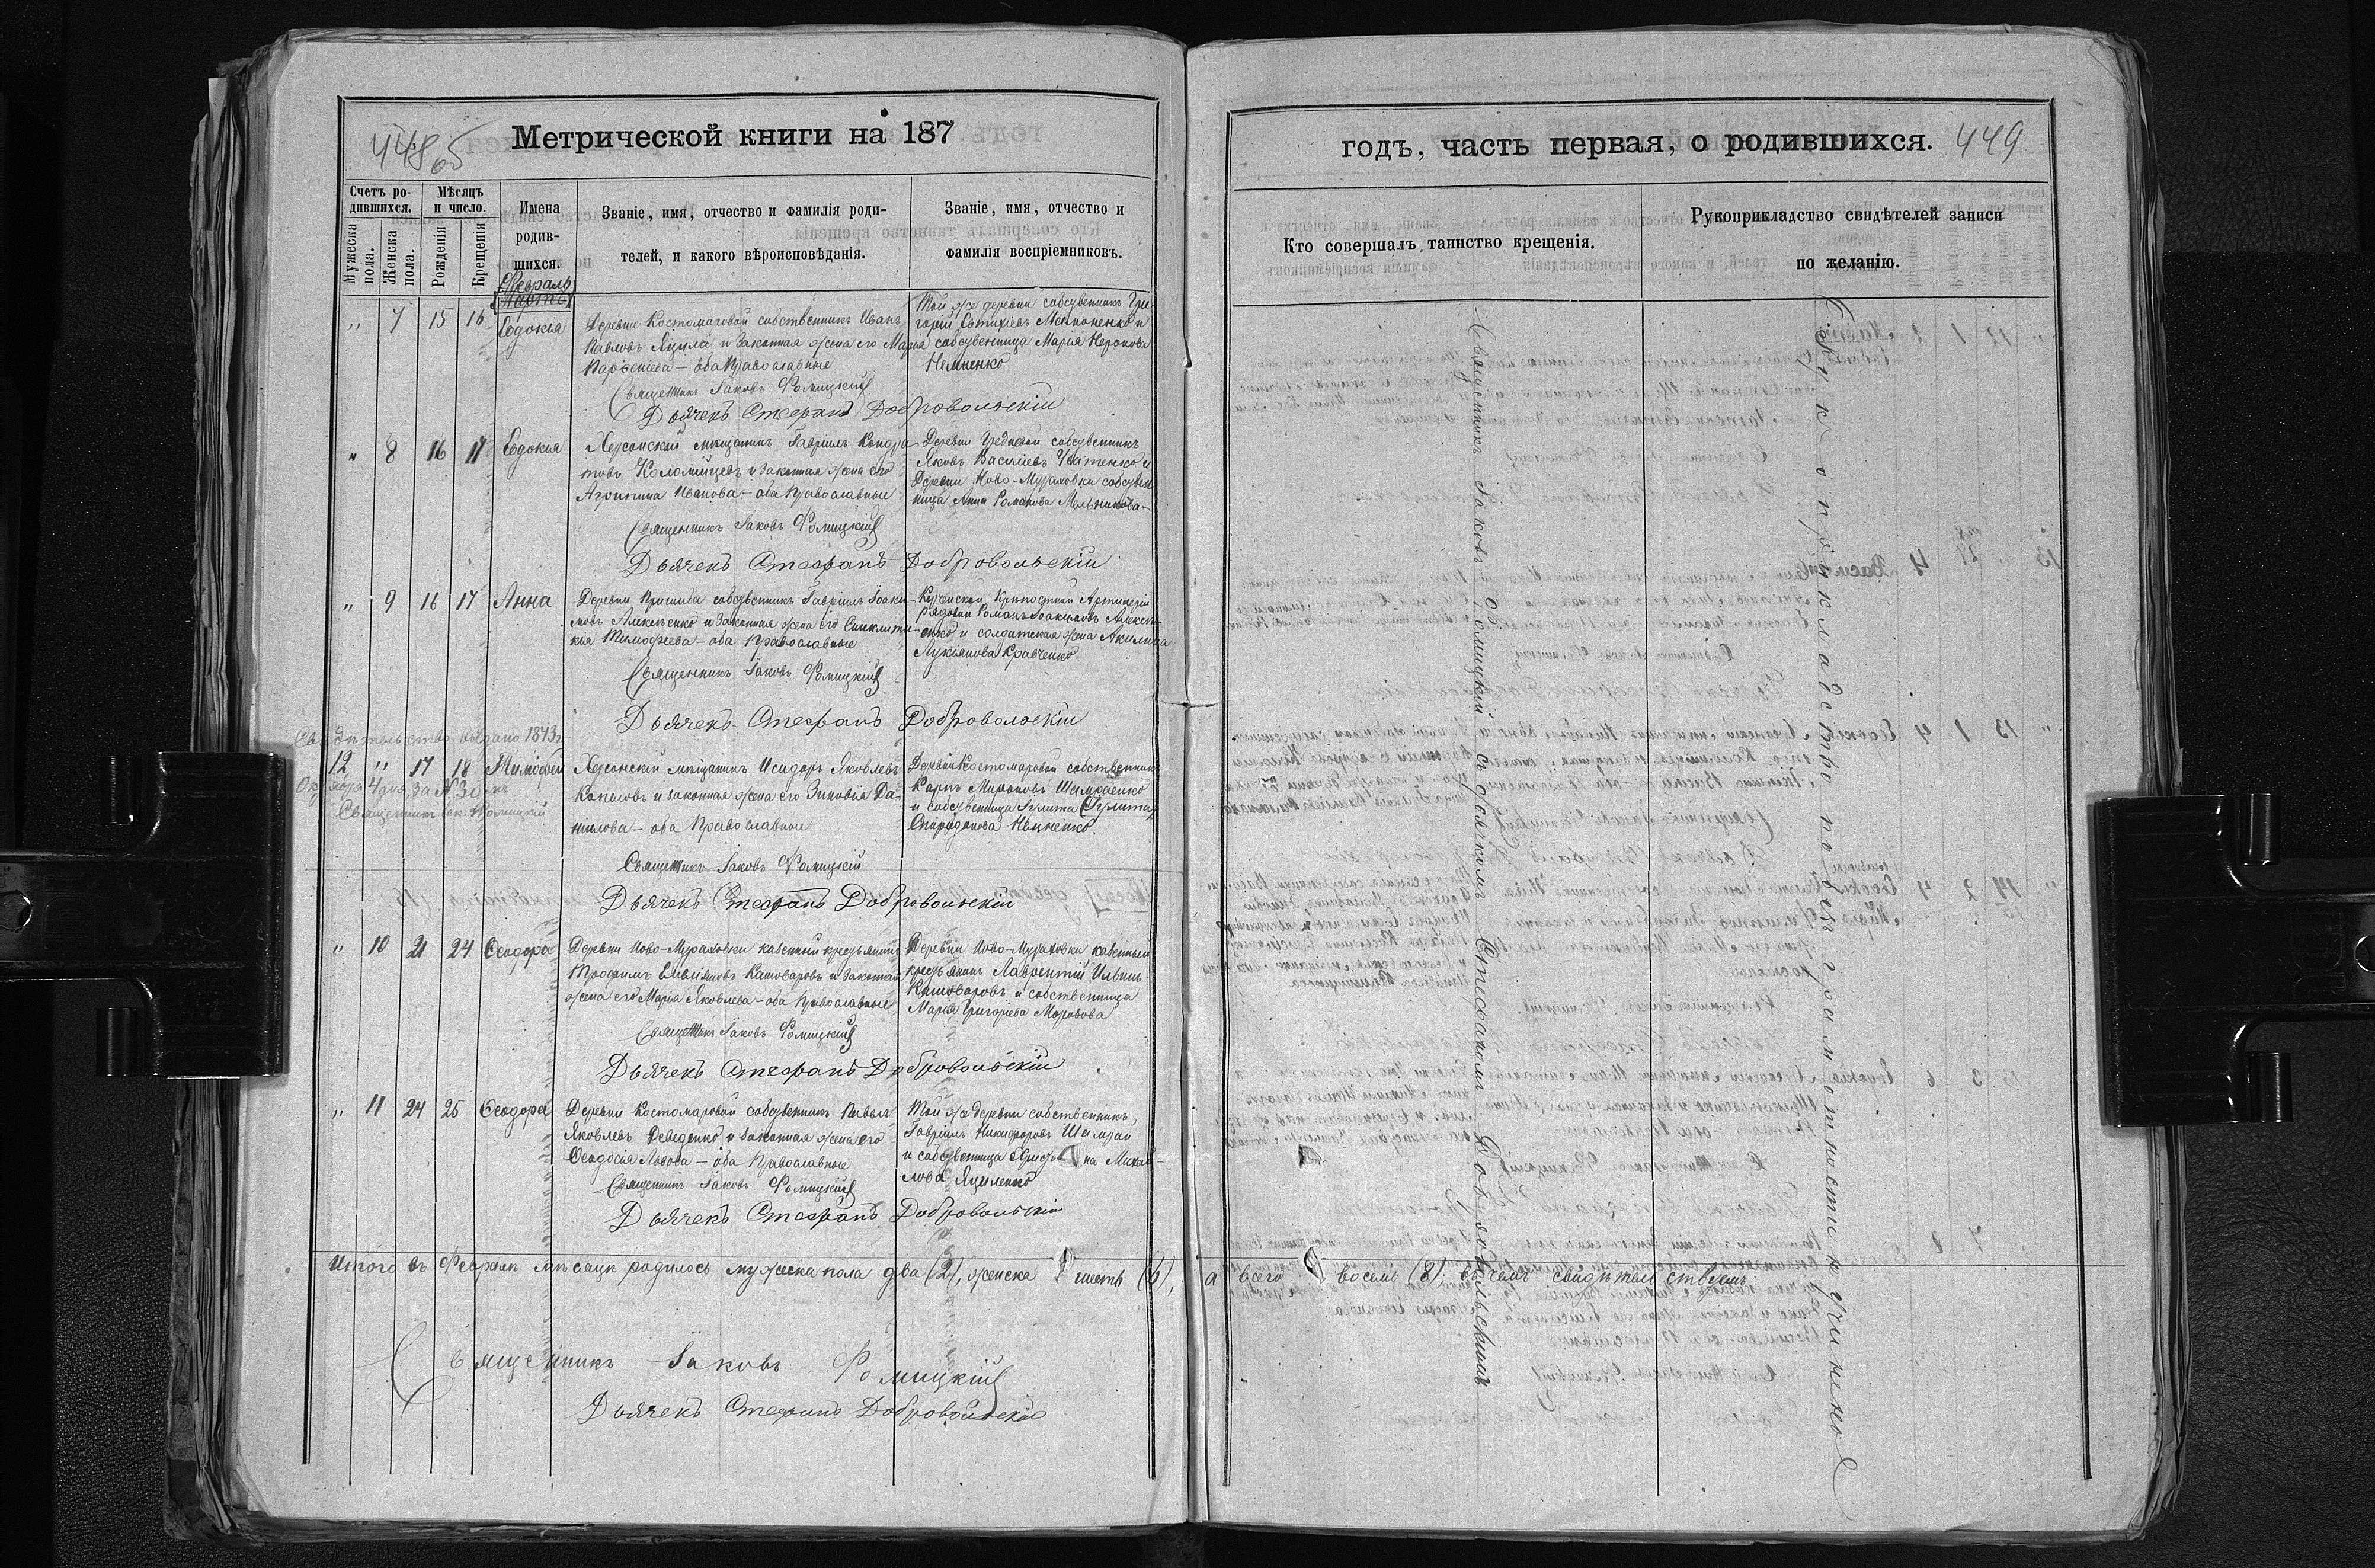 448 об
Метрической книги на 187
Счетъ ро-
дившихся.
Мѣсяцъ
и число.
Мужеска
пола.
Женска
пола.
Рожденія
Крещенія
Имена
родив-
шихся.
Званіе, имя, отчество и фамилія роди-
телей, и какого вѣроисповѣданія.
Званіе, имя, отчество и
фамилія воспріемниковъ.
Февраль
Мартъ
" 7 15 16 Евдокія
Деревни Костомаровой собственникъ Иванъ
Павловъ Яцула и законная жена его Марія
оба Православные
Той же деревни собственникъ Гри-
горій Евтихіевъ и
собственница Марья
Немненко
Священникъ Іаковъ Фомицкій
Дьячекъ Стефанъ Добровольскій
" 8 16 17 Евдокія
Херсонскій мѣщанинъ Гавріилъ Кондра-
товъ Коломійцевъ и законная жена его
Агрипина Иванова – оба Православные
Деревни собственникъ
Яковъ Василіевъ и
Деревни Ново-Мураховки собствен-
ница Анна Романова Мельникова
Священникъ Іаковъ Фомицкій
Дьячекъ Стефанъ Добровольскій
" 9 16 17 Анна
Деревни собственникъ Гавріилъ Іоаки-
мовъ Алексѣенко и законная жена его Синклити-
кія Тимофеева – оба Православные
Крѣпостной Артилеріи
рядовой Романъ Іоакимовъ Алексѣ-
енко и солдатская жена Акилина
Лукьянова Кравченко
Священникъ Іаковъ Фомицкій
Дьячекъ Стефанъ Добровольскій
Свидѣтельство выдано 1893 г.
Октября 4 дня, за № 30
Священникъ Іак. Фомицкій
12 " 17 18 Тимофей
Херсонскій мѣщанинъ Исидоръ Яковлевъ
Копыловъ и законная жена его Зиновья Да-
нилова – оба Православные
Деревни Костомаровой собственникъ
Карпъ Мироновъ
и собственница Гулита (Іулита)
Спиридонова
Священникъ Іаковъ Фомицкій
Дьячекъ Стефанъ Добровольскій
" 10 21 24 Ѳеодора
Деревни Ново-Мураховки казенный крестьянинъ
Трофимъ Емеліановъ Кашоваровъ и законная
жена его Марія Яковлева – оба Православные
Деревни Ново-Мураховки казенный
крестьянинъ Лаврентій Ильинъ
Кашоваровъ и собственница
Марія Григорьева Морозова
Священникъ Іаковъ Фомицкій
Дьячекъ Стефанъ Добровольскій
" 11 24 25 Ѳеодора
Деревни Костомаровой собственникъ Павелъ
Яковлевъ и законная жена его
Ѳеодосія Львова – оба Православные
Той же деревни собственникъ
Гавріилъ Никифоровъ Шамрай
и собственница на Михай-
лова Яциленко
Священникъ Іаковъ Фомицкій
Дьячекъ Стефанъ Добровольскій
Итого въ Февралѣ мѣсяцѣ родилось мужеска пола два (2), женска шесть (6), а всего восемь (8), въ чемъ свидѣтельствуемъ
Священникъ Іаковъ Фомицкій
Дьячекъ Стефанъ Добровольскій
годъ, часть первая, о родившихся. 449
Кто совершалъ таинство крещенія.
Рукоприкладство свидѣтелей записи
по желанію.
Священникъ Іаковъ Фомицкій съ дьячкомъ Стефаномъ Добровольскимъ
Рукоприкладство по безграмотности не учинено